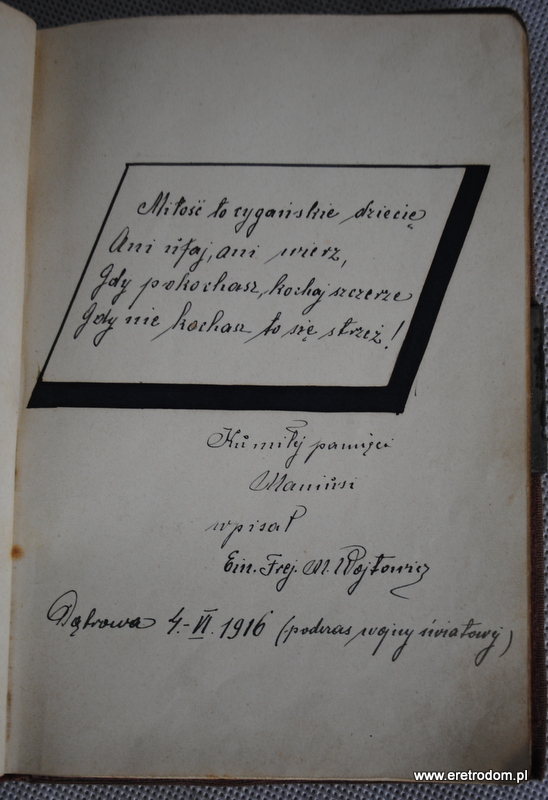 Miłość to cygańskie dziecię
Ani ufaj, ani wierz,
Gdy pokochasz, kochaj szczerze
Gdy nie kochasz to się strzeż!
Ku miłej pamięci
Maniusi
wpisał
Ein. Frej. M. Wojtowicz
Dąbrowa 4.-VI. 1916 (podczas wojny światowej)
www.eretrodom.pl